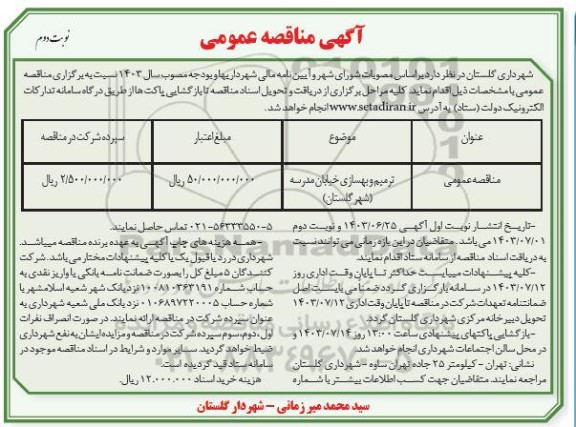 آگهی مناقصه عمومی
نوبت دوم
شهرداری گلستان در نظر دارد براساس مصوبات شورای شهر و آیین نامه مالی شهرداریها و بودجه مصوب سال ۱۴۰۳ نسبت به برگزاری مناقصه
عمومی با مشخصات ذیل اقدام نماید. کلیه مراحل برگزاری از دریافت و تحویل اسناد مناقصه تا بازگشایی پاکت ها از طریق درگاه سامانه تدارکات
الکترونیک دولت (ستاد) به آدرس www.setadiran.ir انجام خواهد شد.
عنوان موضوع مبلغ اعتبار سپرده شرکت در مناقصه
مناقصه عمومی ترمیم و بهسازی خیابان مدرسه (شهر گلستان) ۵۰/۰۰۰/۰۰۰/۰۰۰ ریال ۲/۵۰۰/۰۰۰/۰۰۰ ریال
-تاریخ انتشار نوبت اول آگهی ۱۴۰۳/۰۶/۲۵ و نوبت دوم
۱۴۰۳/۰۷/۰۱ می باشد. متقاضیان در این بازه زمانی می توانند نسبت
به دریافت اسناد مناقصه از سامانه ستاد اقدام نمایند.
-کلیه پیشنهادات میبایست حداکثر تا پایان وقت اداری روز
۱۴۰۳/۰۷/۱۲ در سامانه بارگزاری گردد ضمنا می بایست اصل
ضمانتنامه تعهدات شرکت در مناقصه تا پایان وقت اداری ۱۴۰۳/۰۷/۱۲
تحویل دبیرخانه مرکزی شهرداری گلستان گردد.
-بازگشایی پاکتهای پیشنهادی ساعت ۱۳:۰۰ روز ۱۴۰۳/۰۷/۱۴ و
در محل سالن اجتماعات شهرداری انجام خواهد شد.
نشانی: تهران - کیلومتر ۲۵ جاده تهران ساوه - شهرداری گلستان
مراجعه نمایند. متقاضیان جهت کسب اطلاعات بیشتر با شماره
۵-۵۶۳۳۳۵۵۰-۰۲۱ تماس حاصل نمایند.
-همه هزینه های چاپ آگهی به عهده برنده مناقصه میباشد.
شهرداری در رد یا قبول یک یا کلیه پیشنهادات مختار می باشد. شرکت
کنندگان ۵ مبلغ کل را بصورت ضمانت نامه بانکی یا واریز نقدی به
حساب شماره ۱۰۰۸۱۰۳۶۳۱۹۱ نزد بانک شهر شعبه اسلامشهر یا
شماره حساب ۰۱۰۶۸۹۷۲۲۰۰۰۵ نزد بانک ملی شعبه شهرداری به
عنوان سپرده شرکت در مناقصه ارائه نمایند. در صورت انصراف نفرات
اول، دوم، سوم سپرده شرکت در مناقصه و مزایده ایشان به نفع شهرداری
ضبط خواهد گردید. سایر موارد و شرایط در اسناد مناقصه موجود در
سامانه ستاد قید گردیده است.
هزینه خرید اسناد ۱۲.۰۰۰.۰۰۰ ریال.
سید محمد میرزمانی - شهردار گلستان